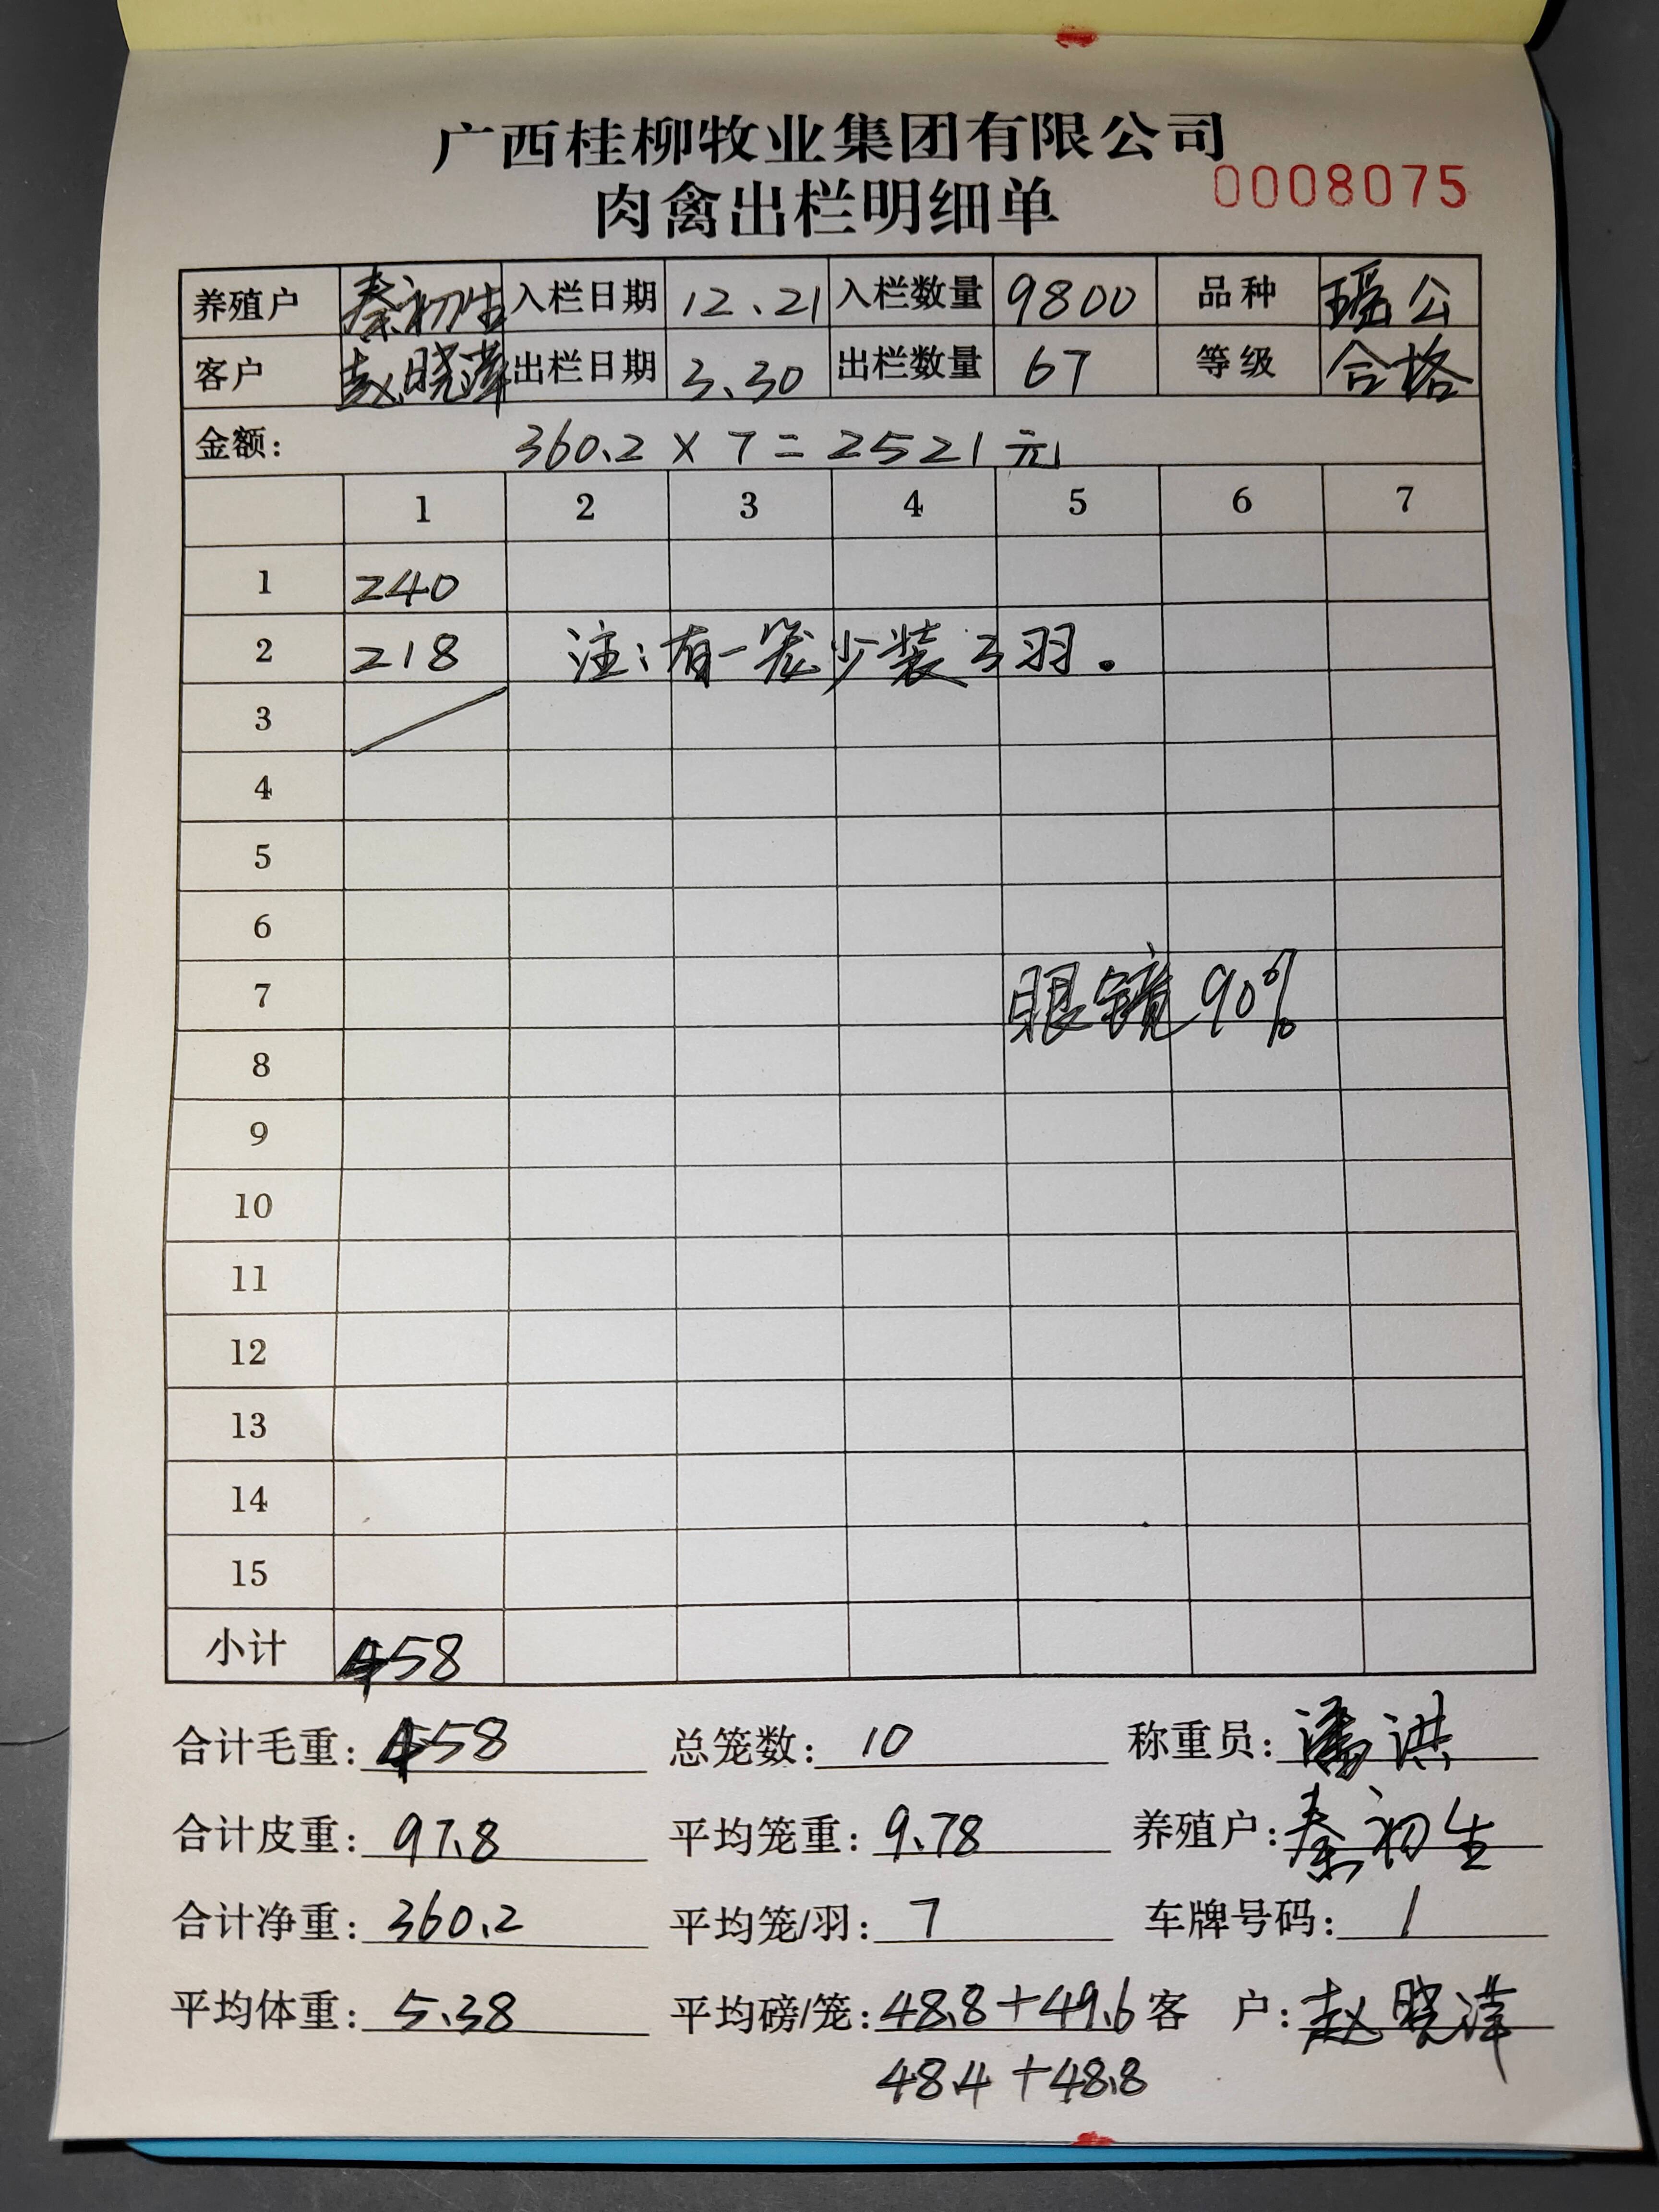 广西桂柳牧业集团有限公司
肉禽出栏明细单 0008075
养殖户 秦初生 入栏日期 12.21 入栏数量 9800 品种 瑶公
客户 赵晓萍 出栏日期 3.30 出栏数量 67 等级 合格
金额: 360.2 X 7 = 2521 元
1 2 3 4 5 6 7
1 240
2 218 注:有一笼少装3羽。
3
4
5
6
7 眼镜90%
8
9
10
11
12
13
14
15
小计 458
合计毛重: 458 总笼数: 10 称重员: 潘洪
合计皮重: 97.8 平均笼重: 9.78 养殖户: 秦初生
合计净重: 360.2 平均笼/羽: 7 车牌号码: /
平均体重: 5.38 平均磅/笼: 48.8+49.6 客 户: 赵晓萍
48.4+48.8